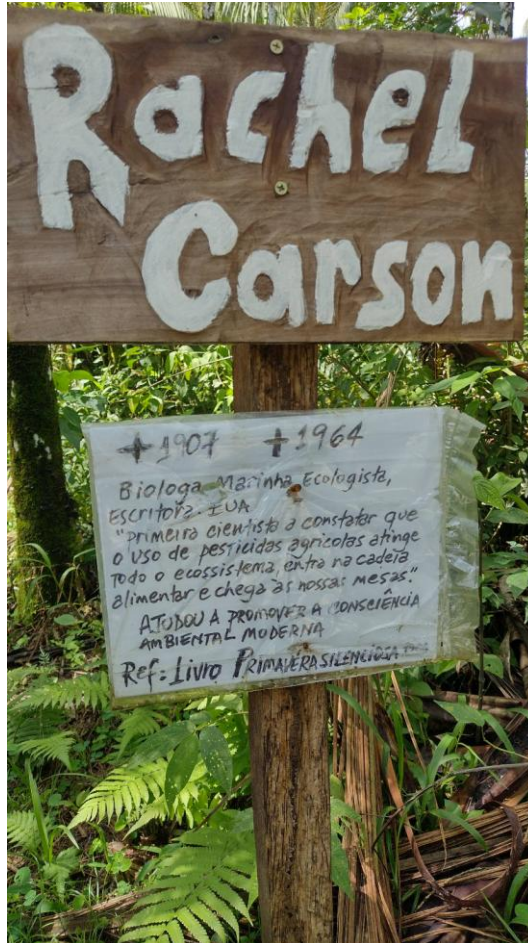 Rachel
Carson
+1907 +1964
Biologa Marinha, Ecologista,
Escritora. IUA
"Primeira cientista a constatar que
o uso de pesticidas agrícolas atinge
todo o ecossistema, entra na cadeia
alimentar e chega às nossas mesas."
AJUDOU A PROMOVER A CONSCIÊNCIA
AMBIENTAL MODERNA
Ref: Livro PRIMAVERA SILENCIOSA